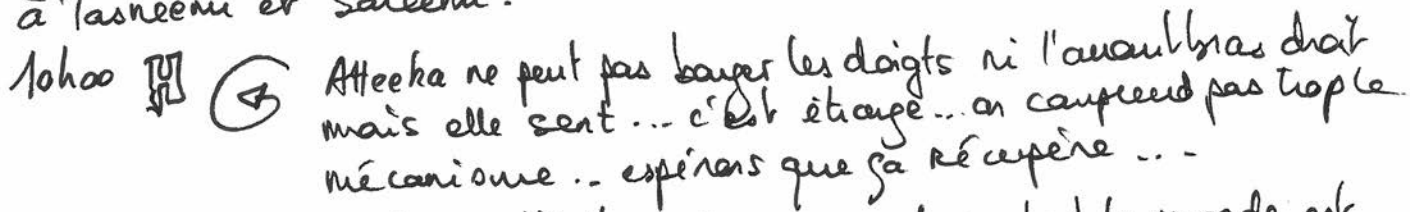 à Tasneem et Saleem.
10h00 H Atteeka ne peut pas bouger les doigts ni l'avant bras droit
mais elle sent... c'est étrange... on comprend pas trop le
mécanisme... espérons que ça récupère...